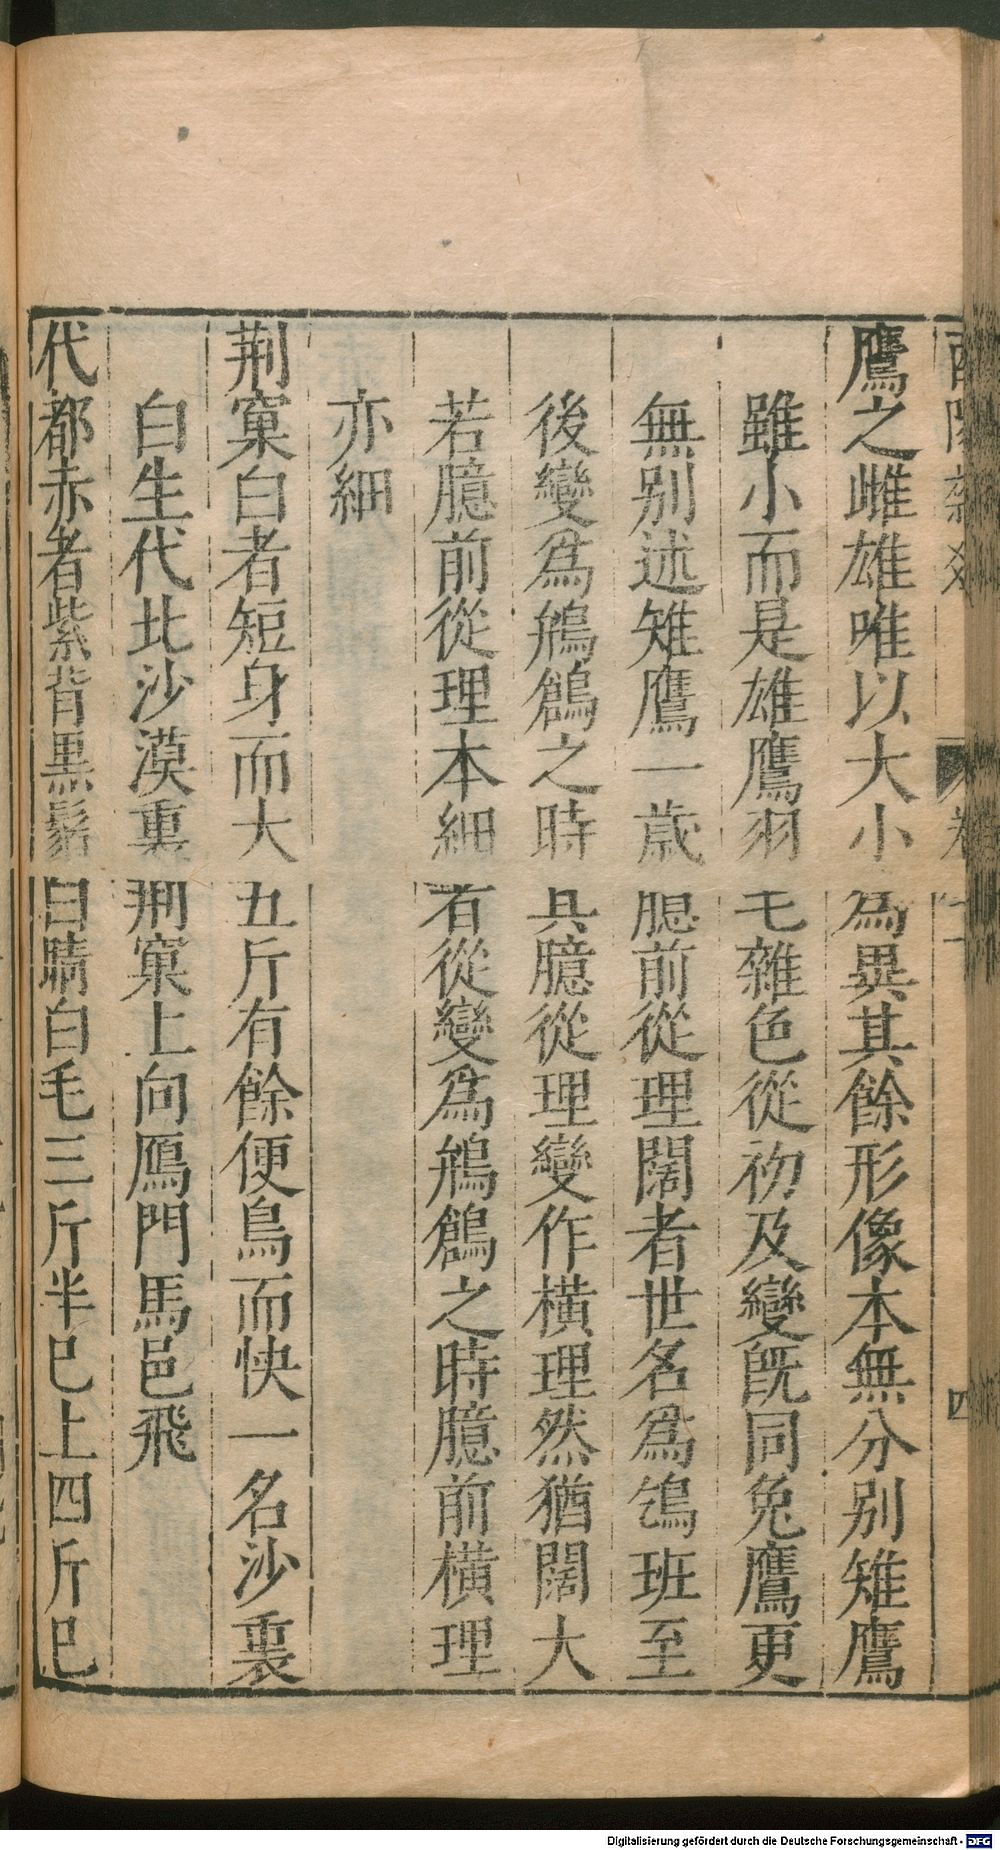 鷹之雌雄唯以大小為異其餘形像本無分別雉鷹
雖小而是雄鷹羽毛雜色從初及變既同兔鷹更
無別述雉鷹一歲臆前從理闊者世名為鴾班至
後變爲鴘鶬之時其臆從理變作橫理然猶闊大
若臆前從理本細者從變爲鴘鶬之時臆前橫理
亦細
荆窠白者短身而大五斤有餘便鳥而快一名沙裏
白生代北沙漠裏荆窠上向鴈門馬邑飛
代都赤者紫背黑鬚白睛白毛三斤半巳上四斤巳
Digitalisierung gefördert durch die Deutsche Forschungsgemeinschaft - DFG